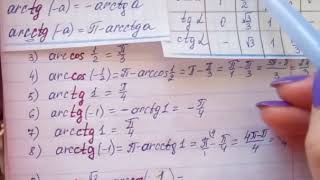 arctg(-a) = -arctg a
arcctg(-a) = π - arcctg a
tg α 0 √3/3 1
ctg α - √3 1
3) arccos 1/2 = π/3
4) arccos(-1/2) = π - arccos 1/2 = π - π/3 = π/1 - π/3 =
5) arctg 1 = π/4
6) arctg(-1) = -arctg 1 = -π/4
7) arcctg 1 = π/4
8) arcctg(-1) = π - arcctg 1 = π/1 - π/4 = 4π-π/4 =